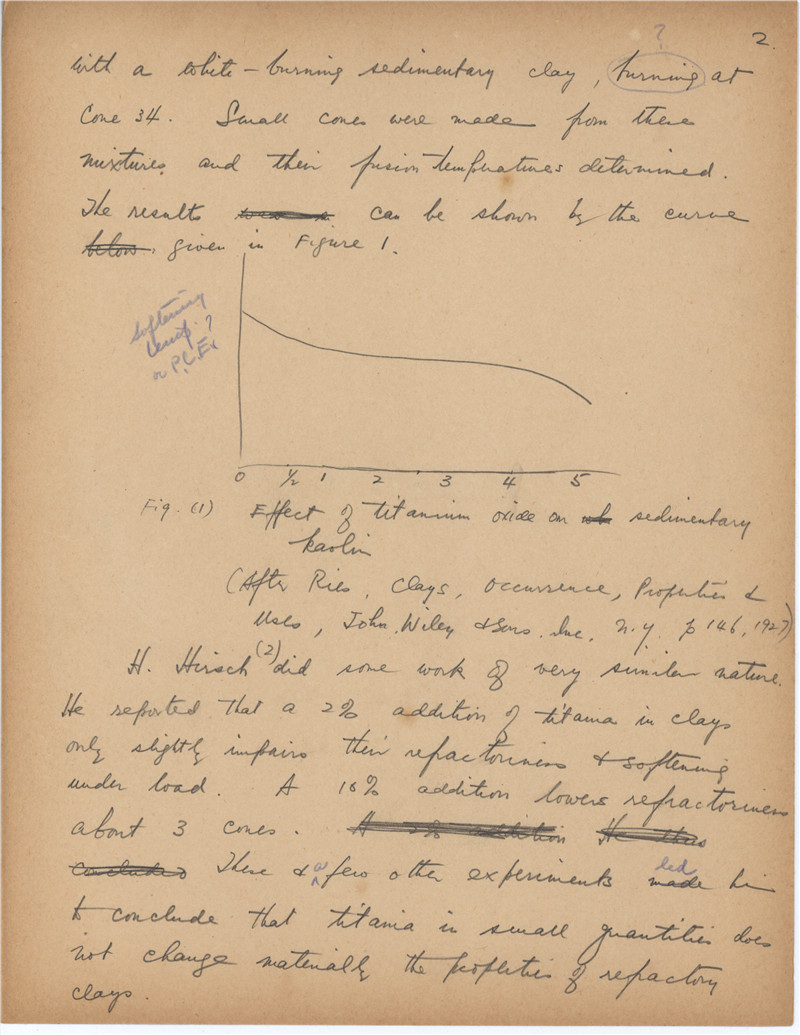 ?
2.
with a white-burning sedimentary clay, burning at
Cone 34. Small cones were made from these
mixtures and their fusion temperatures determined.
The results can be shown by the curve
below. given in Figure 1.
Softening
temp.?
or P.C.E.
0 1/2 1 2 3 4 5
Fig. (1) Effect of titanium oxide on wh sedimentary
kaolin
(After Ries, Clays, Occurrence, Properties &
Uses, John Wiley & Sons. Inc, N.Y. p 146, 1927)
H. Hirsch (2) did some work of very similar nature.
He reported that a 2% addition of titania in clays
only slightly impairs their refractoriness & softening
under load. A 10% addition lowers refractoriness
about 3 cones. A 2% addition He thus
concluded These & a few other experiments made led him
to conclude that titania in small quantities does
not change materially the properties of refractory
clays.